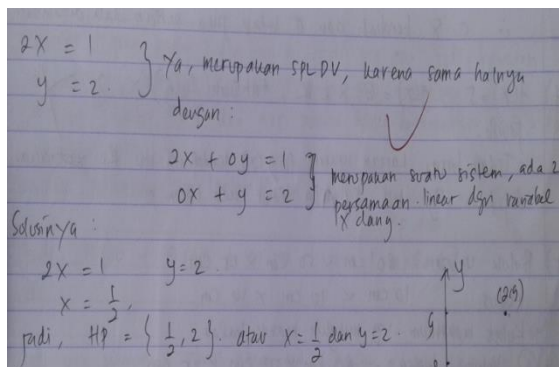 2x = 1
y = 2.
} Ya, merupakan SPLDV, karena sama halnya
dengan:
2x + 0y = 1
0x + y = 2
} merupakan suatu sistem, ada 2
persamaan linear dgn variabel
x dan y.
Solusinya :
2x = 1 y = 2.
x = 1/2,
Jadi, HP = { 1/2, 2 }. atau x = 1/2 dan y = 2.
y